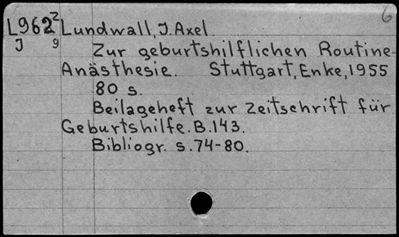 6
L962² Lundwall, J. Axel
J 9 Zur geburtshilflichen Routine-
Anästhesie. Stuttgart, Enke, 1955
80 s.
Beilageheft zur Zeitschrift für
Geburtshilfe. B. 143.
Bibliogr. s. 74-80.